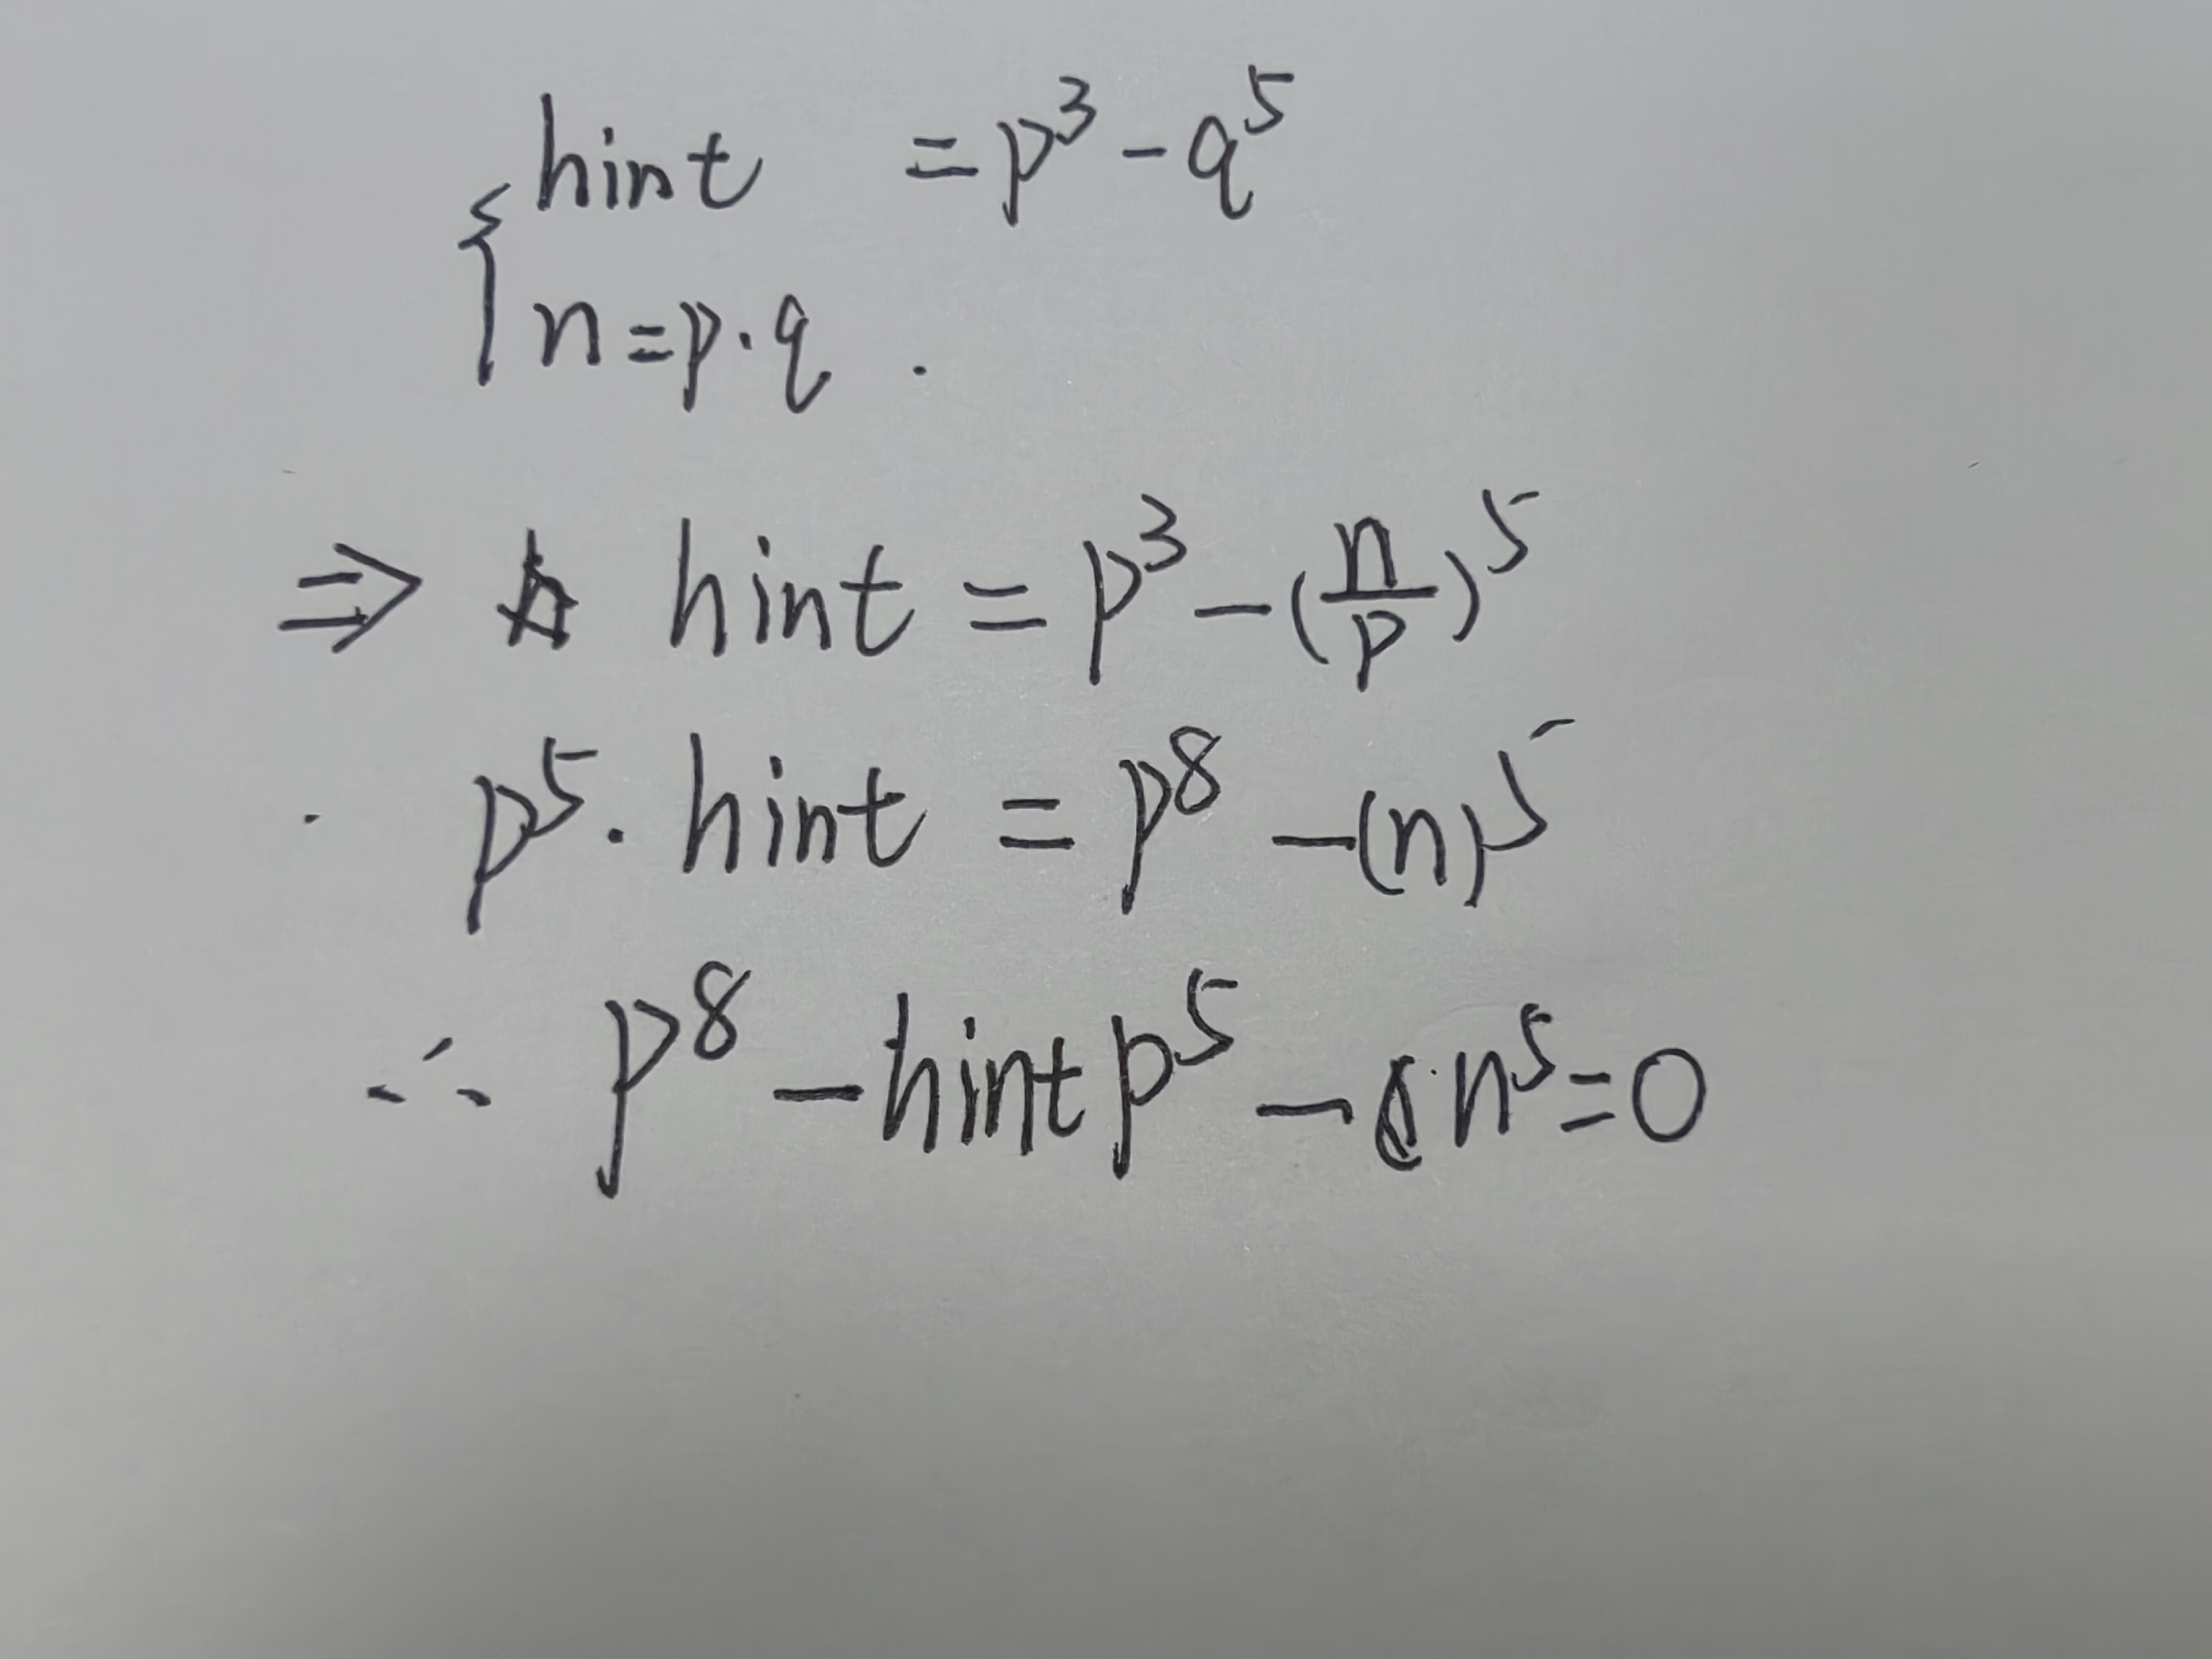 hint = p³ - q⁵
n = p · q .
⇒ hint = p³ - (n/p)⁵
p⁵ · hint = p⁸ - (n)⁵
∴ p⁸ - hint p⁵ - n⁵ = 0